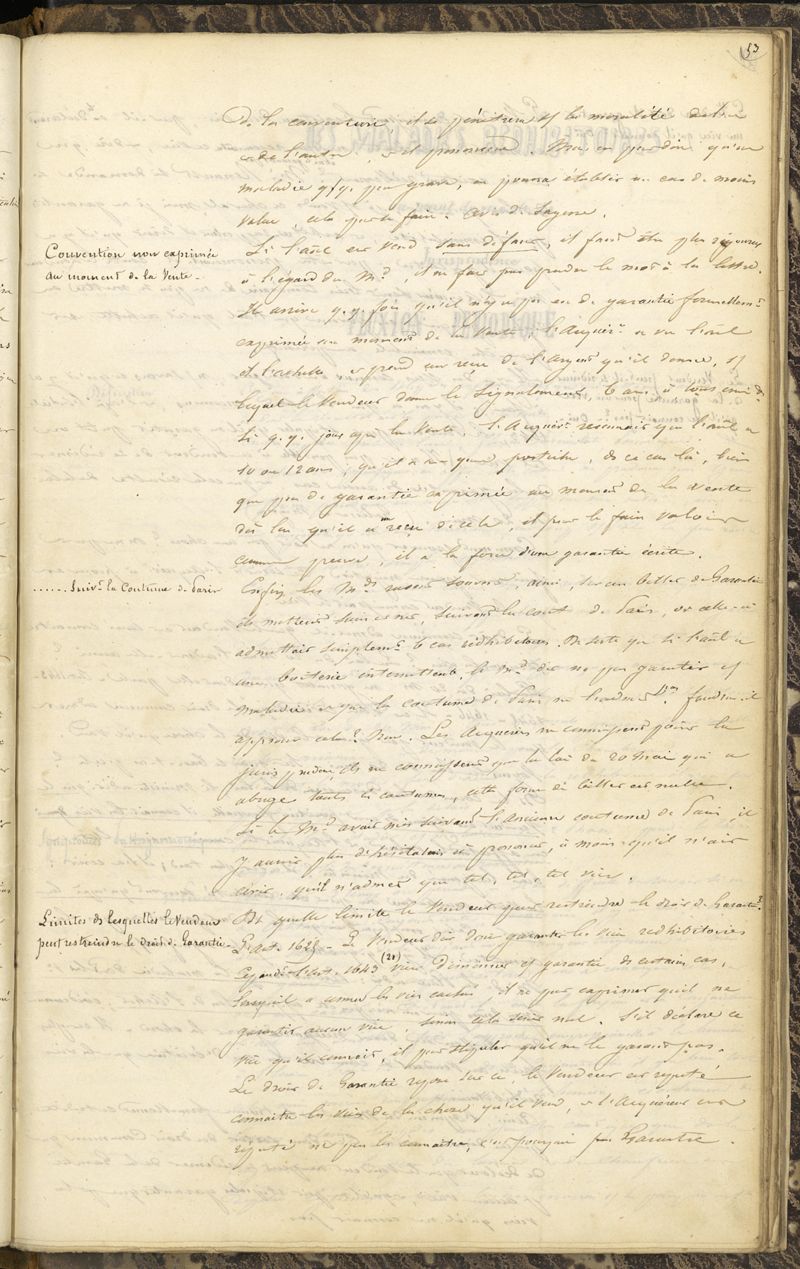 53
de la convention et se pénétrer de la moralité de l'un
et de l'autre, et il prononcera. Mais on peut dire qu'une
maladie q.q. peu grave, on pourra établir un cas de moins
value, cela peut se faire. avis de Sagesse.
Convention non exprimée
au moment de la Vente -
Si l'anl est vend sans défaut, il faut être plus rigoureux
à l'égard du Md, il ne faut pas prendre le mot à la lettre.
Il arrive q.q. fois qu'il n'y a pas eu de garantie formellemt
exprimée au moment de la Vente, l'Acquérr a vu l'anl
et l'achète, et prend un reçu de l'argent qu'il donne, ds
lequel le Vendeur donne le Signalement, 6 ans à
Si q.q. jours après la Vente, l'Acquérr reconnait que l'anl a
10 ou 12 ans, qu'il a une queue postiche, ds ce cas là, bien
que pas de garantie exprimée au moment de la vente
dès lors qu'il a un reçu de cela, il peut le faire valoir
comme preuve, il a la force d'une garantie écrite.
...... Suivt la Coutume de Paris
Enfin, les Mds mettent souvent ainsi, sur un billet de Garantie
sain et net, suivant la cout. de Paris, or celle-ci
admettait simplemt 6 cas rédhibitoires. De sorte que si l'anl a
une boiterie intermittente le Md dit ne pas garantir cette
maladie et que la coutume de Paris ne l'admet pas. faudra-t-il
approuver cela? Non. Les Acquéreurs ne connaissent point la
jurisprudence, ils ne connaissent que la loi du 20 mai qui a
abrogé toutes les coutumes, cette forme de billet est nulle.
Si le Md avait mis suivant l'ancienne coutume de Paris, il
y aurait plus d'hésitation à prononcer, à moins qu'il n'ait
écrit qu'il n'admet que tel, tel, tel vice.
Limites ds lesquelles le Vendeur
peut restreindre le Droit de Garantie -
Ds quelle limite le Vendeur peut restreindre le droit de Garantie?
L'art. 1625 - Le Vendeur doit donc garantir les vices redhibitoires
Cependt l'art. 1643 (21) vient diminuer cette garantie ds certains cas,
Lorsqu'il a connu les vices cachés, il ne peut exprimer qu'il ne
garantit aucun vice, sinon cela serait nul. S'il déclare ce
vice qu'il connait, il peut stipuler qu'il ne le garantit pas.
Le droit de Garantie repose sur ce, le Vendeur est réputé
connaitre les vices de la chose qu'il vend, et l'Acquéreur est
réputé ne pas les connaitre, c'est pourquoi pas Garantie.